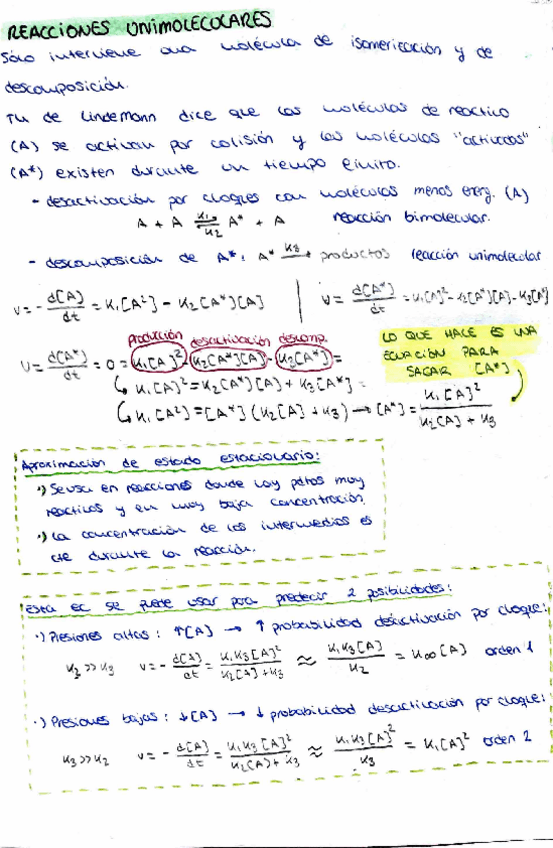 REACCIONES UNIMOLECULARES
Sólo interviene una molécula de isomerización y de
descomposición.
TM de Lindemann dice que las moléculas de reactivo
(A) se activan por colisión y las moléculas "activadas"
(A*) existen durante un tiempo finito.
- desactivación por choques con moléculas menos energ. (A)
A + A ⇌ A* + A    reacción bimolecular.
K1
K2
- descomposición de A*: A* —K3→ productos    reacción unimolecular
V = - d[A]/dt = K1[A²] - K2[A*][A]  |  V = d[A*]/dt = K1[A]² - K2[A*][A] - K3[A*]
producción desactivación descomp.
V = d[A*]/dt = 0 = K1[A]² - K2[A*][A] - K3[A*] =
LO QUE HACE ES UNA
ECUACIÓN PARA
SACAR [A*]
↳ K1[A]² = K2[A*][A] + K3[A*] =
↳ K1[A²] = [A*] (K2[A] + K3) → [A*] = K1[A]² / K2[A] + K3
Aproximación de estado estacionario:
·) Se usa en reacciones donde hay pdtos muy
reactivos y en muy baja concentración.
·) La concentración de los intermedios es
cte durante la reacción.
Esta ec se puede usar para predecir 2 posibilidades:
·) Presiones altas: ↑[A] → ↑ probabilidad desactivación por choque:
K2 >> K3    V = - d[A]/dt = K1K3[A]² / K2[A] + K3 ≈ K1K3[A] / K2 = K∞[A]  orden 1
·) Presiones bajas: ↓[A] → ↓ probabilidad desactivación por choque:
K3 >> K2    V = - d[A]/dt = K1K3[A]² / K2[A] + K3 ≈ K1K3[A]² / K3 = K1[A]²  orden 2